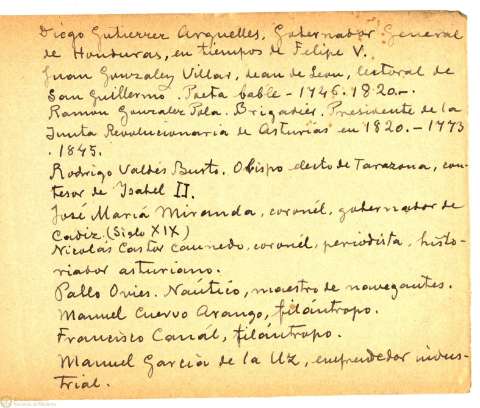 Diego Gutierrez Arguelles, Gobernador General
de Honduras, en tiempos de Felipe V.
Juan Gonzalez Villar, dean de Leon, lectoral de
San Guillermo. Poeta bable - 1746. 1820.-.
Ramon Gonzalez Pola. Brigadier. Presidente de la
Junta Revolucionaria de Asturias en 1820. - 1773
. 1845.
Rodrigo Valdés Busto. Obispo electo de Tarazona, con-
fesor de Isabel II.
José Maria Miranda, coronél, gobernador de
Cadiz. (Siglo XIX)
Nicolás Castor Caunedo, coronél, periodista, histo-
riador asturiano.
Pablo Ovies. Naútico, maestro de navegantes.
Manuel Cuervo Arango, filántropo.
Francisco Canál, filántropo.
Manuel Garcia de la Uz, emprendedor indus-
trial.